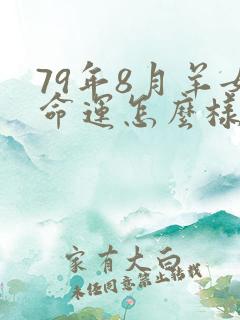 79年8月羊女
命运怎麼樣
家有大白
未经同意禁止转载